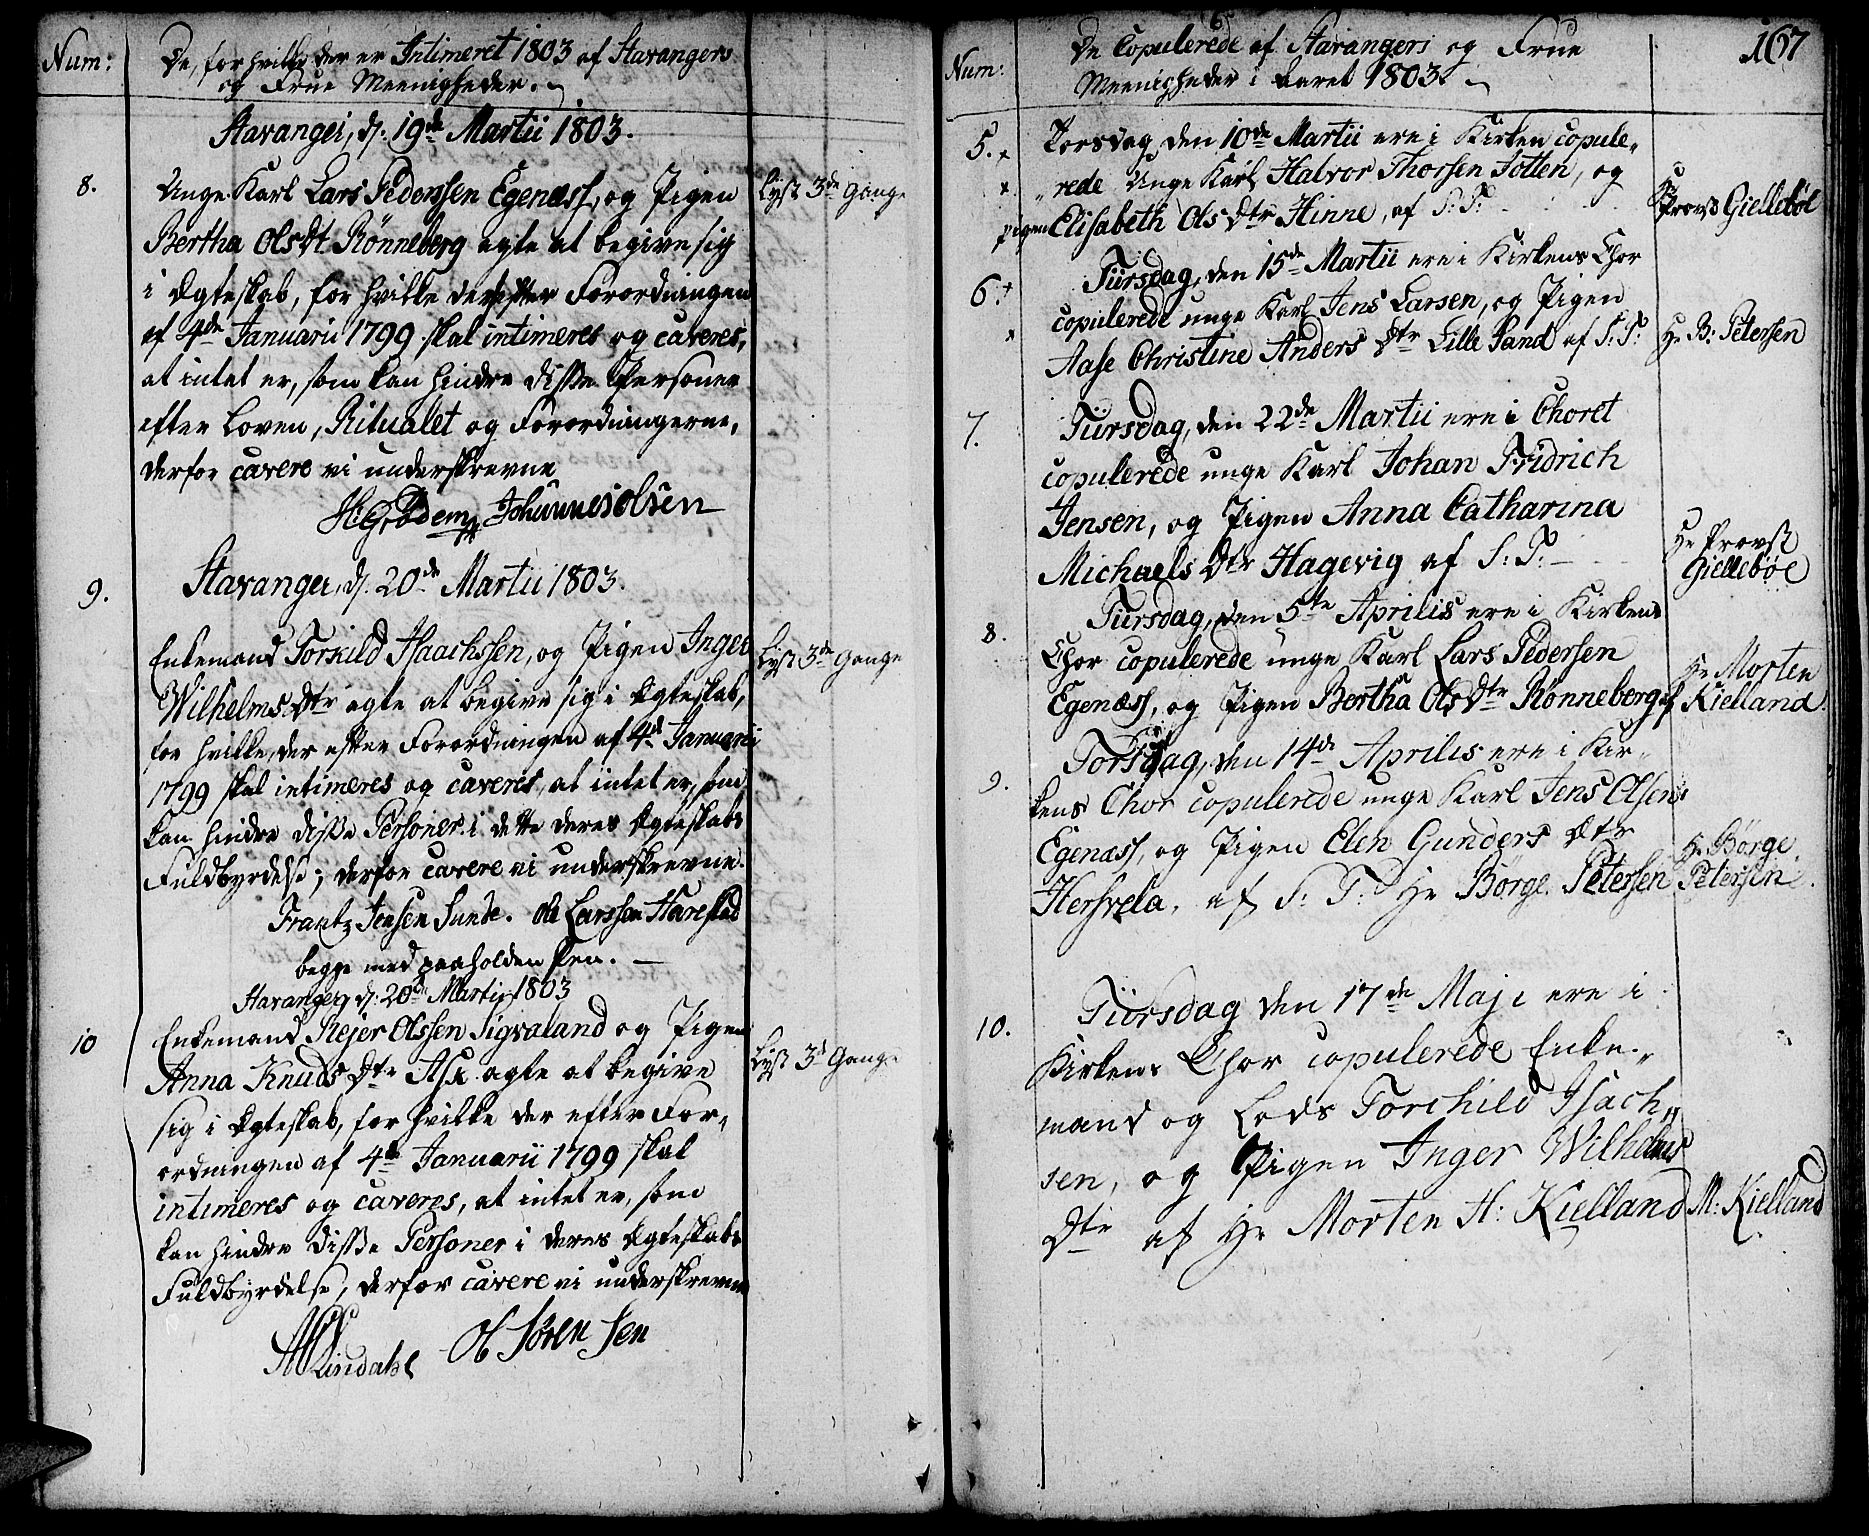 Num:
De, for hvilke der er Intimeret 1803 af Stavangers
og Frue Meenigheder.
Stavanger, d: 19de Martii 1803.
8.
Unge Karl Lars Pedersen Egenæss, og Pigen
Lyst 3de Gange
Bertha Olsdt Rønneberg agte at begive sig
i Ægteskab, for hvilke der efter Forordningen
af 4de Januarii 1799 skal intimeres og caveres,
at intet er, som kan hindre disse Personer
efter Loven, Ritualet og Forordningerne,
derfor cavere vi underskrevne
H: Grödem Johannes olsen
Stavanger, d. 20de Martii 1803.
9.
Enkemand Torkild Isachssen, og Pigen Inger
Lyst 3de Gange
Wilhelms Dtr agte at begive sig i Ægteskab,
for hvilke, der efter Forordningen af 4d Januarii
1799 skal intimeres og caveres, at intet er, som
kan hindre disse Personer i dette deres Ægteskabs
Fuldbyrdelse; derfor cavere vi underskrevne.
Frantz Jensen Sunde. Ole Larssen Harestad
begge med paaholden Pen.
Stavanger, d: 20de Martii 1803
10
Enkemand Rejer Olssen Sigvaland og Pigen
Lyst 3d Gange
Anna Knuds Dtr Ask agte at begive
sig i Ægteskab, for hvilke der efter For„
ordningen af 4de Januarii 1799 skal
intimeres og caveres, at intet er, som
kan hindre disse Personer i deres Ægteskabs
Fuldbyrdelse, derfor cavere vi underskrevne
Lindahl Ol Sören sen
Num:
De Copulerede af Stavangers og Frue
Meenigheder i Aaret 1803.
167
5.
Torsdag, den 10de Martii ere i Kirken copule„
„rede Unge Karl Halvor Thorsen Jotten, og
pigen Elisabeth Ols Dtr Hinne, af S: T:
Hr Provst Giellebøl
6.
Tirsdag, den 15de Martii ere i Kirkens Chor
copulerede unge Karl Jens Larsen, og Pigen
Aase Christine Anders Dtr Lille Sand af S: T:
Hr B: Petersen
7.
Tirsdag, den 22de Martii ere i Choret
copulerede unge Karl Johan Fridrich
Jensen, og Pigen Anna Catharina
Michaels Dtr Hagevig af S: T:
Hr Provst
Giellebøl
8.
Tirsdag, den 5te Aprilis ere i Kirkens
Chor copulerede unge Karl Lars Pedersen
Egenæss, og Pigen Bertha Ols Dtr Rønneberg af
Hr Morten
Kielland
9.
Torsdag, den 14de Aprilis ere i Kir„
kens Chor copulerede unge Karl Jens Olsen
Egenæss, og Pigen Elen Gunders Dtr
Hersvela, af S: T: Hr Börge Petersen
Hr Börge
Petersen
10.
Tiirsdag den 17de Maji ere i
Kirkens Chor copulerede Enke„
mand og Lods Torchild Isach„
sen, og Pigen Inger Wilhelms
Dtr af Hr Morten H: Kielland
M: Kielland